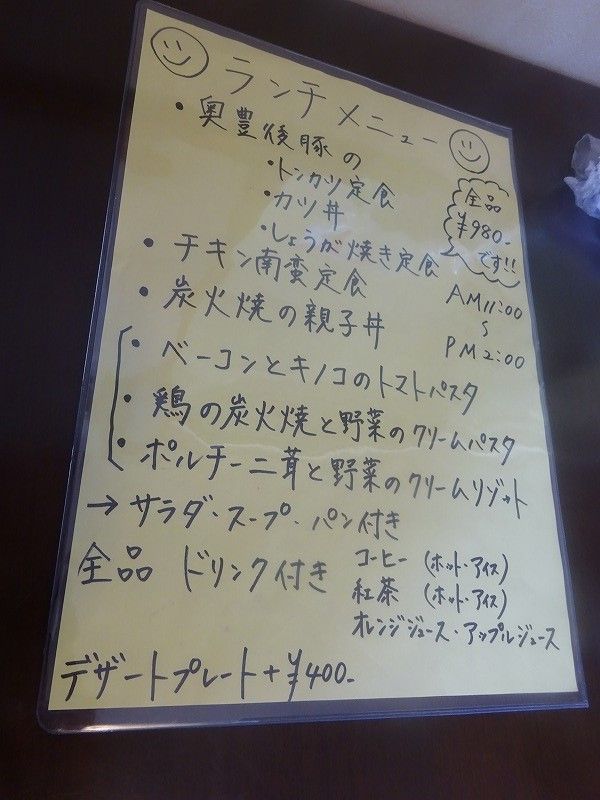 ランチメニュー
・奥豊後豚の
・トンカツ定食
・カツ丼
・しょうが焼き定食
全品
¥980-
です!!
・チキン南蛮定食
・炭火焼の親子丼
AM11:00
〜
PM2:00
・ベーコンとキノコのトマトパスタ
・鶏の炭火焼と野菜のクリームパスタ
・ポルチーニ茸と野菜のクリームリゾット
→サラダ・スープ・パン付き
全品 ドリンク付き
コーヒー (ホット・アイス)
紅茶 (ホット・アイス)
オレンジジュース・アップルジュース
デザートプレート+¥400-